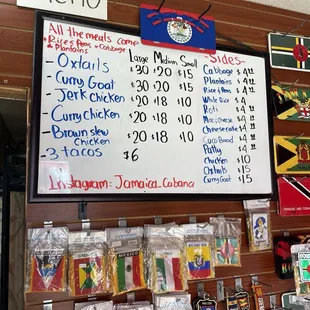 All the meals come
*Rice & Peas * Cabbage
& Plantains
Large Medium Small
- Oxtails $30 $20 $15
- Curry Goat $30 $20 $15
- Jerk chicken $20 $18 $10
- Curry Chicken $20 $18 $10
- Brown stew chicken $20 $18 $10
- 3 tacos $6
- Sides -
Cabbage $4
Plantains $4
Rice & Peas $4
White Rice $4
Roti $4
Mac & Cheese $4
Cheesecake $4
Coco Bread $4
Patty $4
Chicken $10
Oxtails $15
Curry Goat $15
Instagram: Jamaica-Cabana